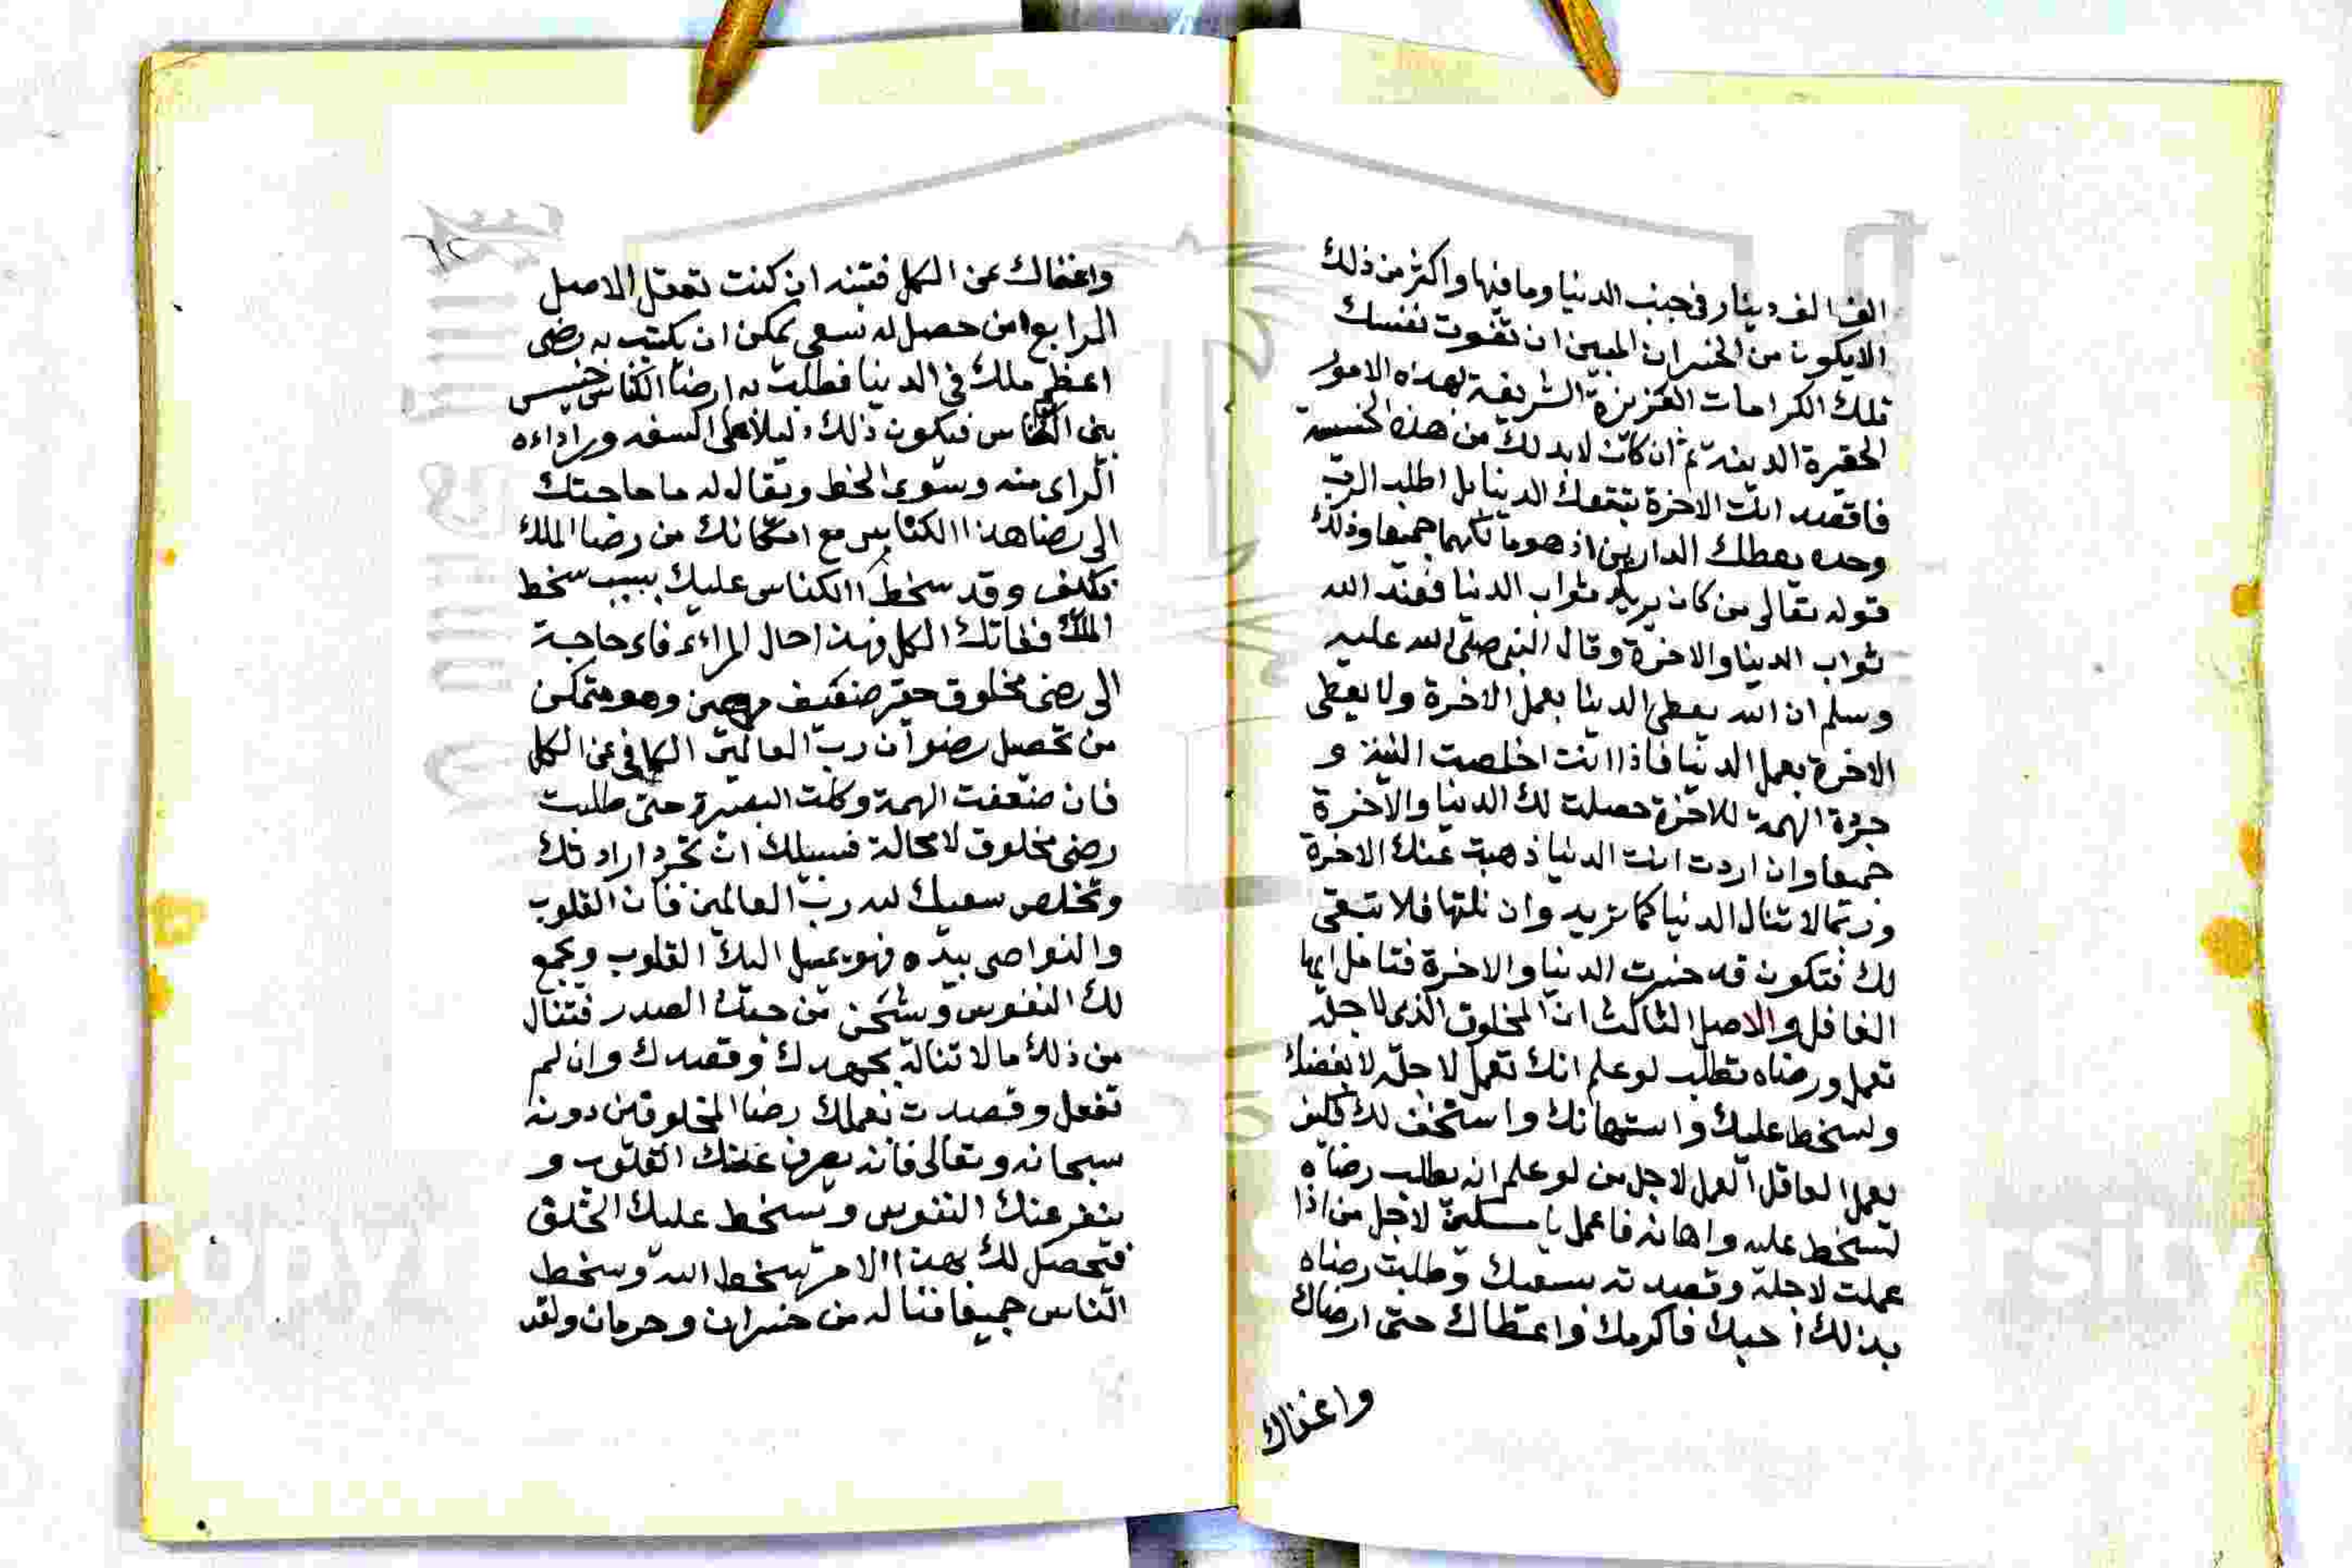 الف الف دينار في جنب الدنيا وما فيها واكثر من ذلك
الايكون من الخسران المبين ان تفوت نفسك
تلك الكرامات العزيزة الشريفة لهذه الامور
الحقيرة الدينة ثم ان كانت لابد لك من هذه الخسيسة
فاقصد انت الاخرة تتبعك الدنيا بل اطلب الرب
وحده يعطك الدارين اذ هو مالكهما جميعا وذلك
قوله تعالى من كان يريد ثواب الدنيا فعند الله
ثواب الدنيا والاخرة وقال النبي صلى الله عليه
وسلم ان الله يعطي الدنيا بعمل الاخرة ولا يعطي
الاخرة بعمل الدنيا فاذا انت اخلصت النية و
جردة الهمة للاخرة حصلت لك الدنيا والاخرة
جميعا وان اردت انت الدنيا ذهبت عنك الاخرة
وربما لا تنال الدنيا كما تريد وان نلتها فلا تبقى
لك فتكون قد خسرت الدنيا والاخرة فتامل ايها
الغافل والاصل الثالث ان المخلوق الذي لاجله
تعمل ورضاه تطلب لو علم انك تعمل لاجله لابغضك
ولسخط عليك واستهانك واستخف لك فكيف
يعمل العاقل العمل لاجل من لو علم انه يطلب رضاه
لسخط عليه واهانه فاعمل يا مسكين لاجل من اذا
عملت لاجله وقصدته بسعيك وطلبت رضاه
بذلك احبك فاكرمك واعطاك حتى ارضاك
واغناك
واغناك عن الكل فتنبه ان كنت تعقل الاصل
الرابع ان من حصل له سعي يمكن ان يكتسب به رضى
اعظم ملك في الدنيا فطلب به ارضا الكناس خسيس
بين الناس فيكون ذلك دليلا على السفه ورداءه
الراى منه وسوى الحظ ويقال له ما حاجتك
الى رضا هذا الكناس مع امكانك من رضا الملك
فكيف وقد سخط الكناس عليك بسبب سخط
الملك ففاتك الكل فهذا حال المراءى فاى حاجة
الى رضى مخلوق حقير ضعيف مهين وهو متمكن
من تحصيل رضوان رب العالمين الكافي عن الكل
فان ضعفت الهمة وكلت البصيرة حتى طلبت
رضى مخلوق لا محالة فسبيلك ان تجرد ارادتك
وتخلص سعيك لله رب العالمين فان القلوب
والنواصي بيده فهو يميل اليك القلوب ويجمع
لك النفوس ويشحن من حبك الصدر فتنال
من ذلك ما لا تناله بجهدك وقصدك وان لم
تفعل وقصدت بعملك رضا المخلوقين دونه
سبحانه وتعالى فانه يصرف عنك القلوب و
ينفر عنك النفوس ويسخط عليك الخلق
فيحصل لك بهذا الامر سخط الله وسخط
الناس جميعا فيا له من خسران وحرمان ولقد